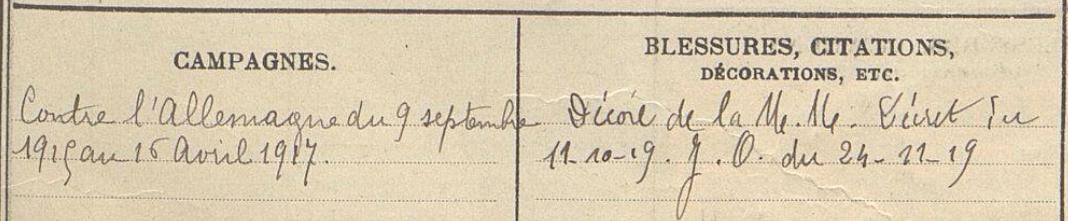 CAMPAGNES.
Contre l'Allemagne du 9 septembre
1915 au 16 Avril 1917.
BLESSURES, CITATIONS,
DÉCORATIONS, ETC.
Décoré de la M. M. Décret du
11-10-19. J. O. du 24-11-19